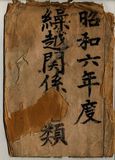 昭和六年度
繰越関係 類